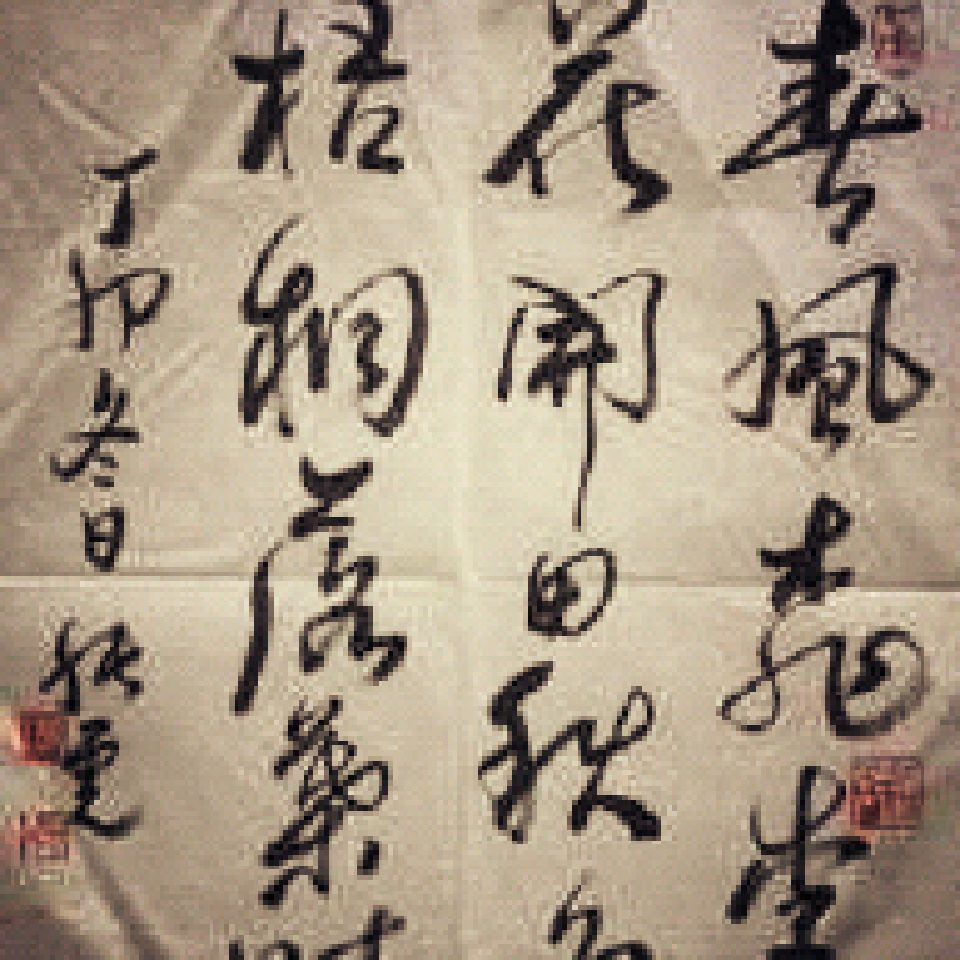 春風桃李
花開日秋
梧桐落葉時
丁卯冬日